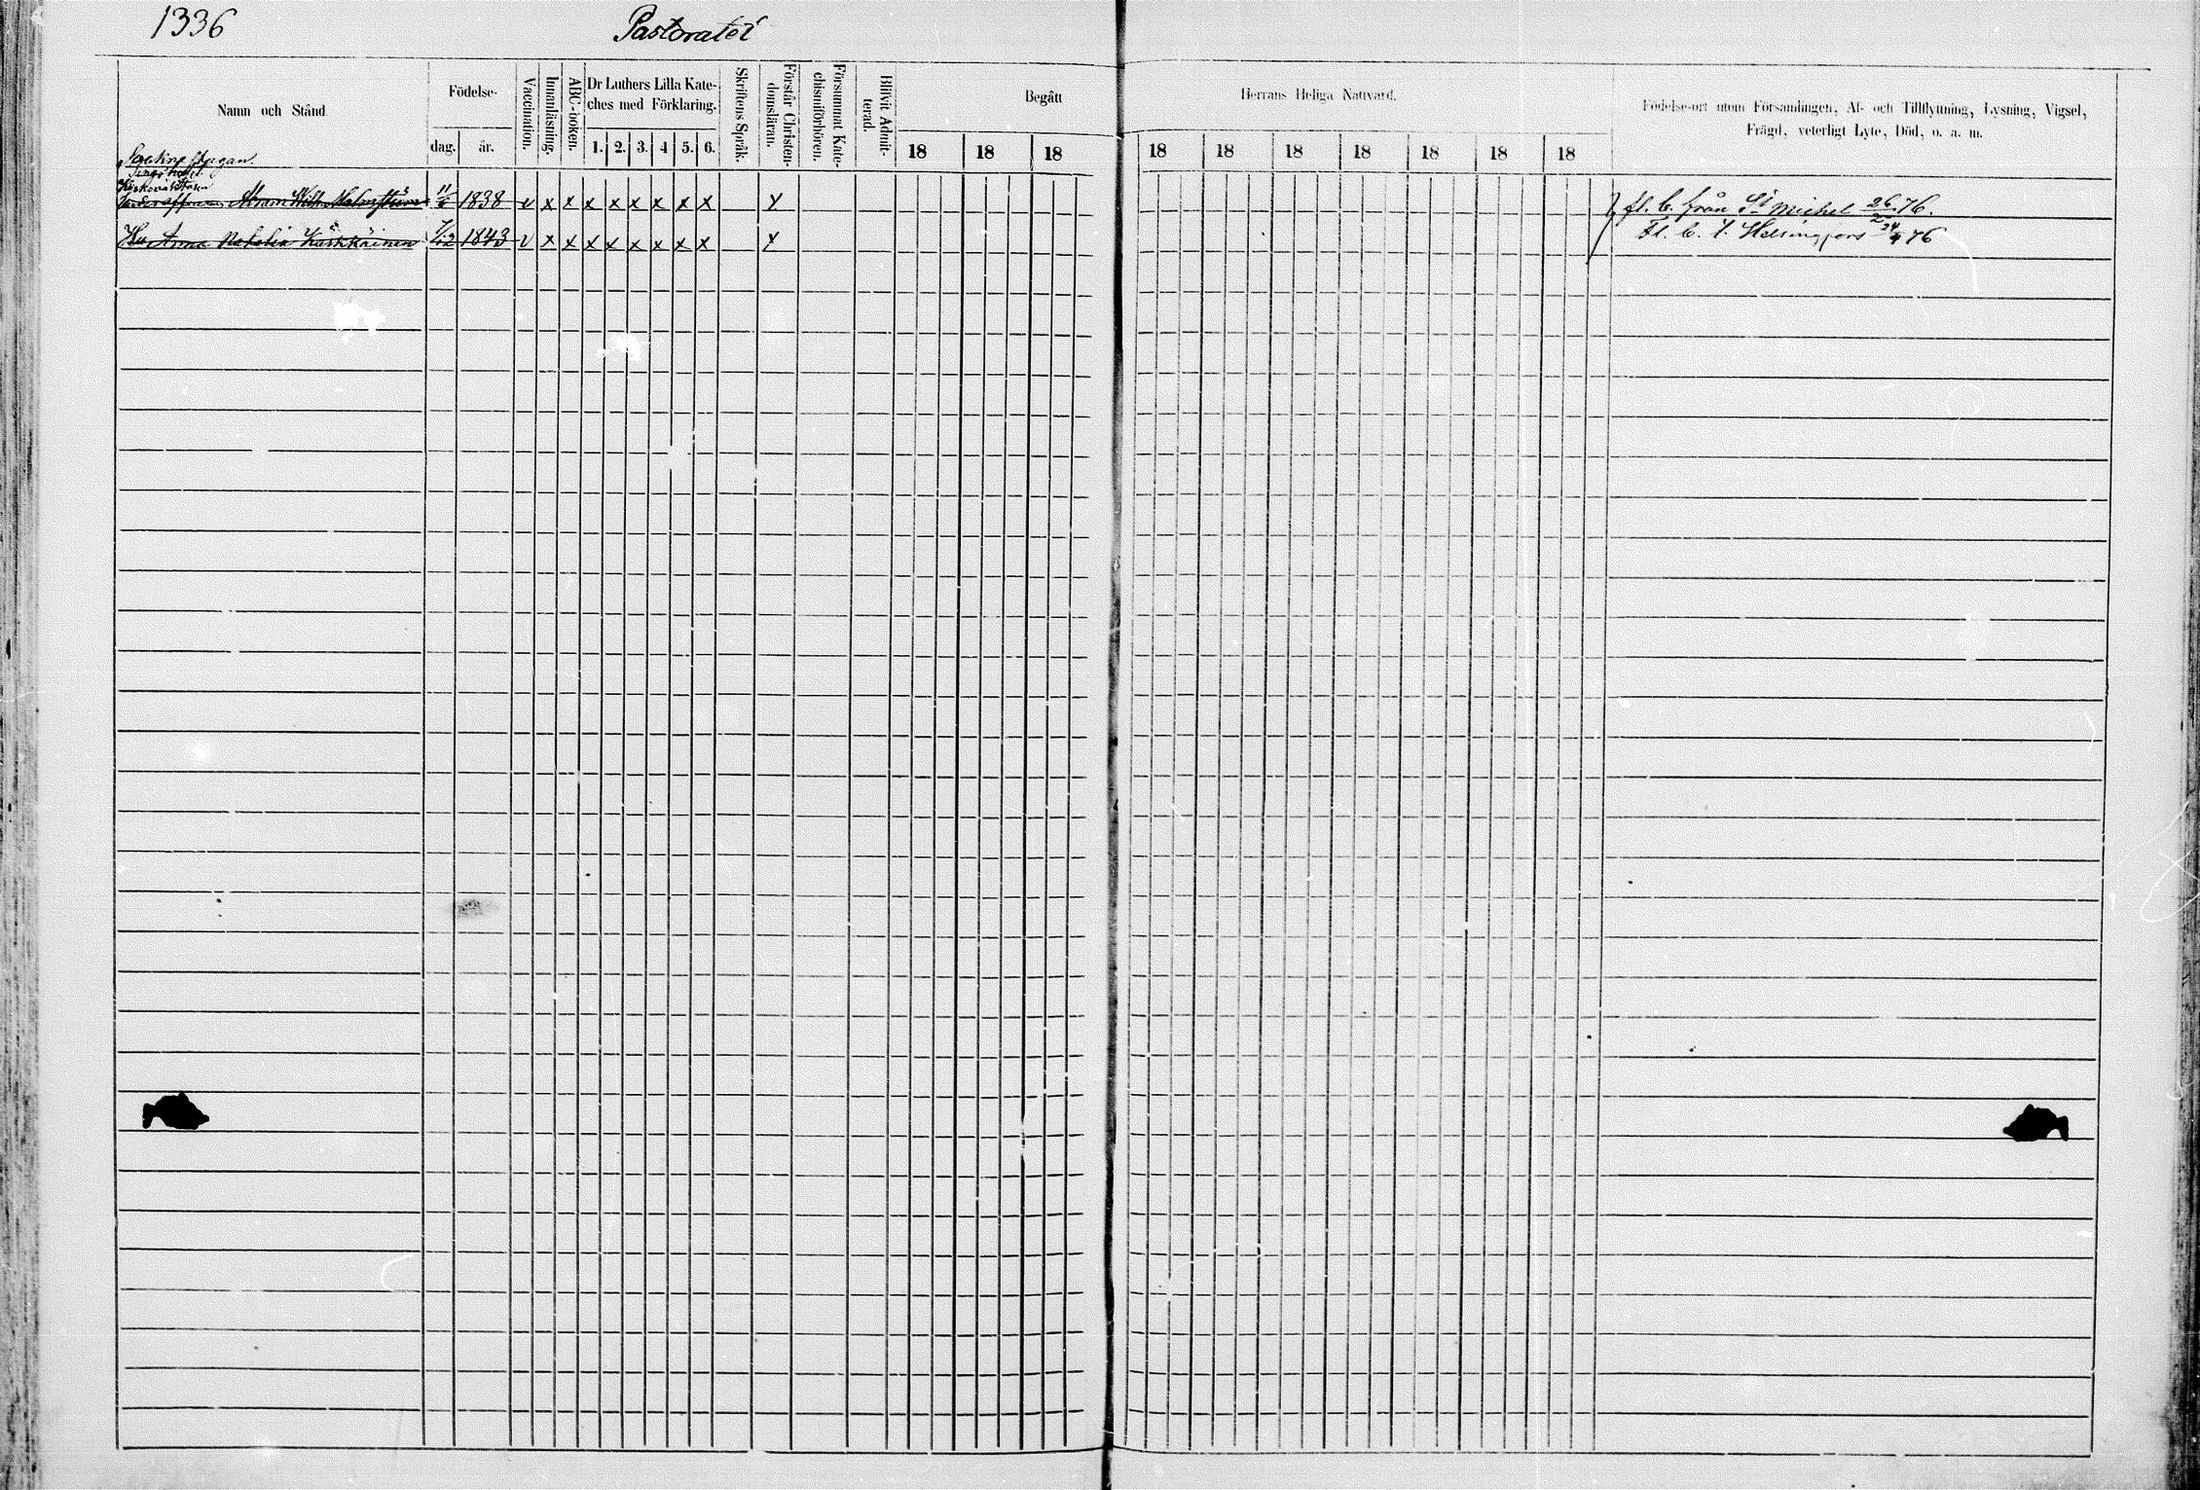 1336
Pastoratet
Namn och Stånd
Födelse-
dag.
år.
Vaccination.
Innanläsning.
ABC-boken.
Dr Luthers Lilla Kate-
ches med Förklaring.
1. 2. 3. 4 5. 6.
Skriftens Språk.
Förstår Christen-
domsläran.
Försummat Kate-
chismiförhören.
Blifvit Admit-
terad.
Begått
Herrans Heliga Nattvard.
18 18 18 18 18 18 18 18 18 18
Födelse-ort utom Församlingen, Af- och Tillflyttning, Lysning, Vigsel,
Frägd, veterligt Lyte, Död, o. a. m.
Abram Wilh. Malmström 11/6 1838 v x x x x x x x x x fl. b. från St Michel 26/2 76.
Hu Anna Natalia Kärkkäinen 7/12 1843 v x x x x x x x x x Fl. b. t. Helsingfors 24/4 76